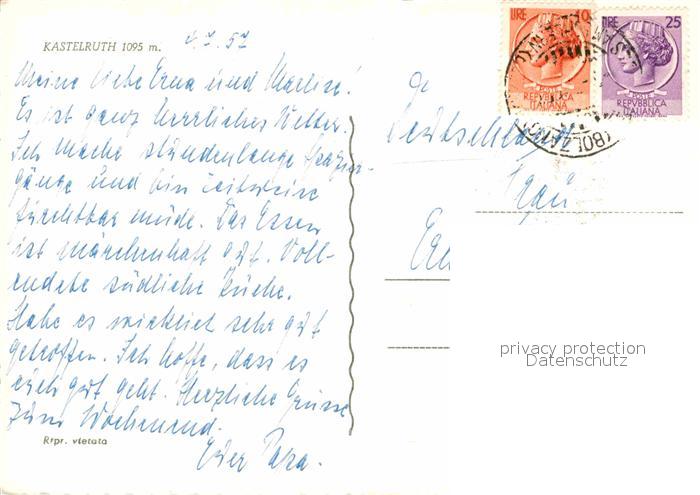 KASTELRUTH 1095 m.
4.7.57
Meine liebe Erna und Marlise!
Es ist ganz herrliches Wetter.
Ich mache stundenlange Spazier-
gänge und bin zeitweise
furchtbar müde. Das Essen
ist märchenhaft gut. Voll-
endete südliche Küche.
Habe es wirklich sehr gut
getroffen. Ich hoffe, dass es
euch gut geht. Herzliche Grüsse
zum Wochenend.
Euer Papa.
Rrpr. vietata
LIRE 10
POSTE
REPVBBLICA
ITALIANA
LIRE 25
POSTE
REPVBBLICA
ITALIANA
(BOLZANO)
Deutschland
Frau
privacy protection
Datenschutz